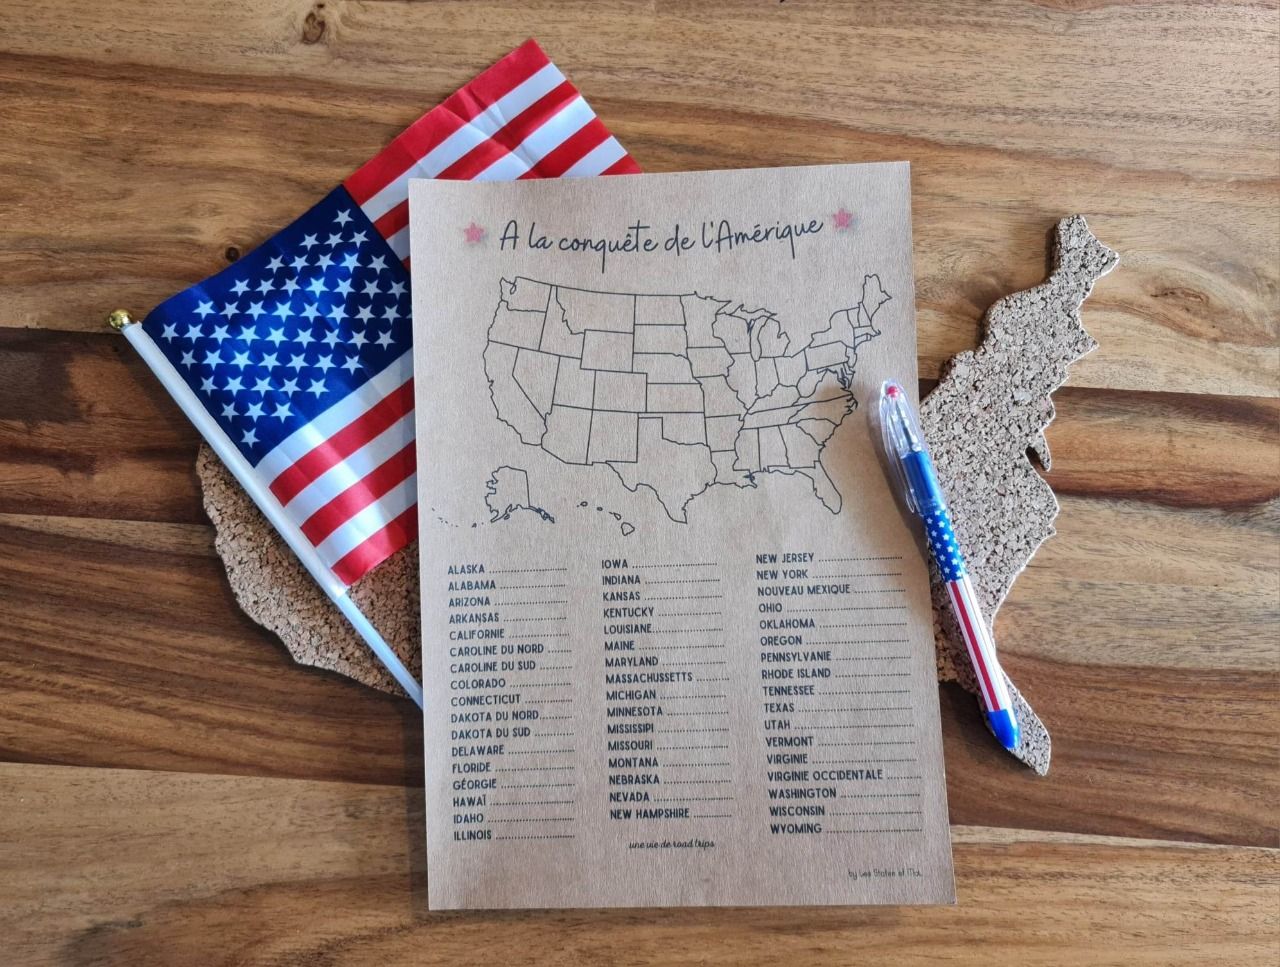 A la conquête de l'Amérique
ALASKA
ALABAMA
ARIZONA
ARKANSAS
CALIFORNIE
CAROLINE DU NORD
CAROLINE DU SUD
COLORADO
CONNECTICUT
DAKOTA DU NORD
DAKOTA DU SUD
DELAWARE
FLORIDE
GÉORGIE
HAWAÏ
IDAHO
ILLINOIS
IOWA
INDIANA
KANSAS
KENTUCKY
LOUISIANE
MAINE
MARYLAND
MASSACHUSSETTS
MICHIGAN
MINNESOTA
MISSISSIPI
MISSOURI
MONTANA
NEBRASKA
NEVADA
NEW HAMPSHIRE
NEW JERSEY
NEW YORK
NOUVEAU MEXIQUE
OHIO
OKLAHOMA
OREGON
PENNSYLVANIE
RHODE ISLAND
TENNESSEE
TEXAS
UTAH
VERMONT
VIRGINIE
VIRGINIE OCCIDENTALE
WASHINGTON
WISCONSIN
WYOMING
une vie de road trips
by Les States et Moi